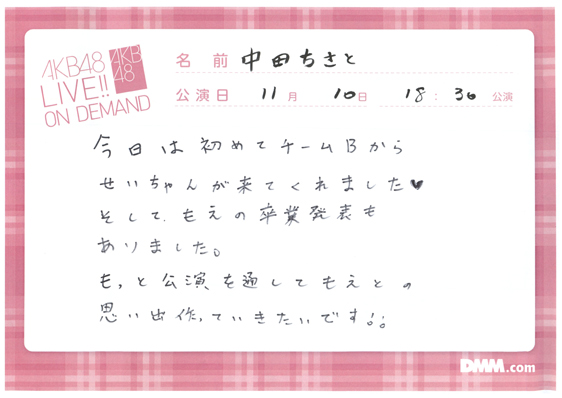 AKB48
LIVE!!
ON DEMAND
AKB
48
名前 中田ちさと
公演日 11月 10日 18:30 公演
今日は初めてチームBから
せいちゃんが来てくれました♥
そして、もえの卒業発表も
ありました。
もっと公演を通してもえとの
思い出作っていきたいです!!
DMM.com